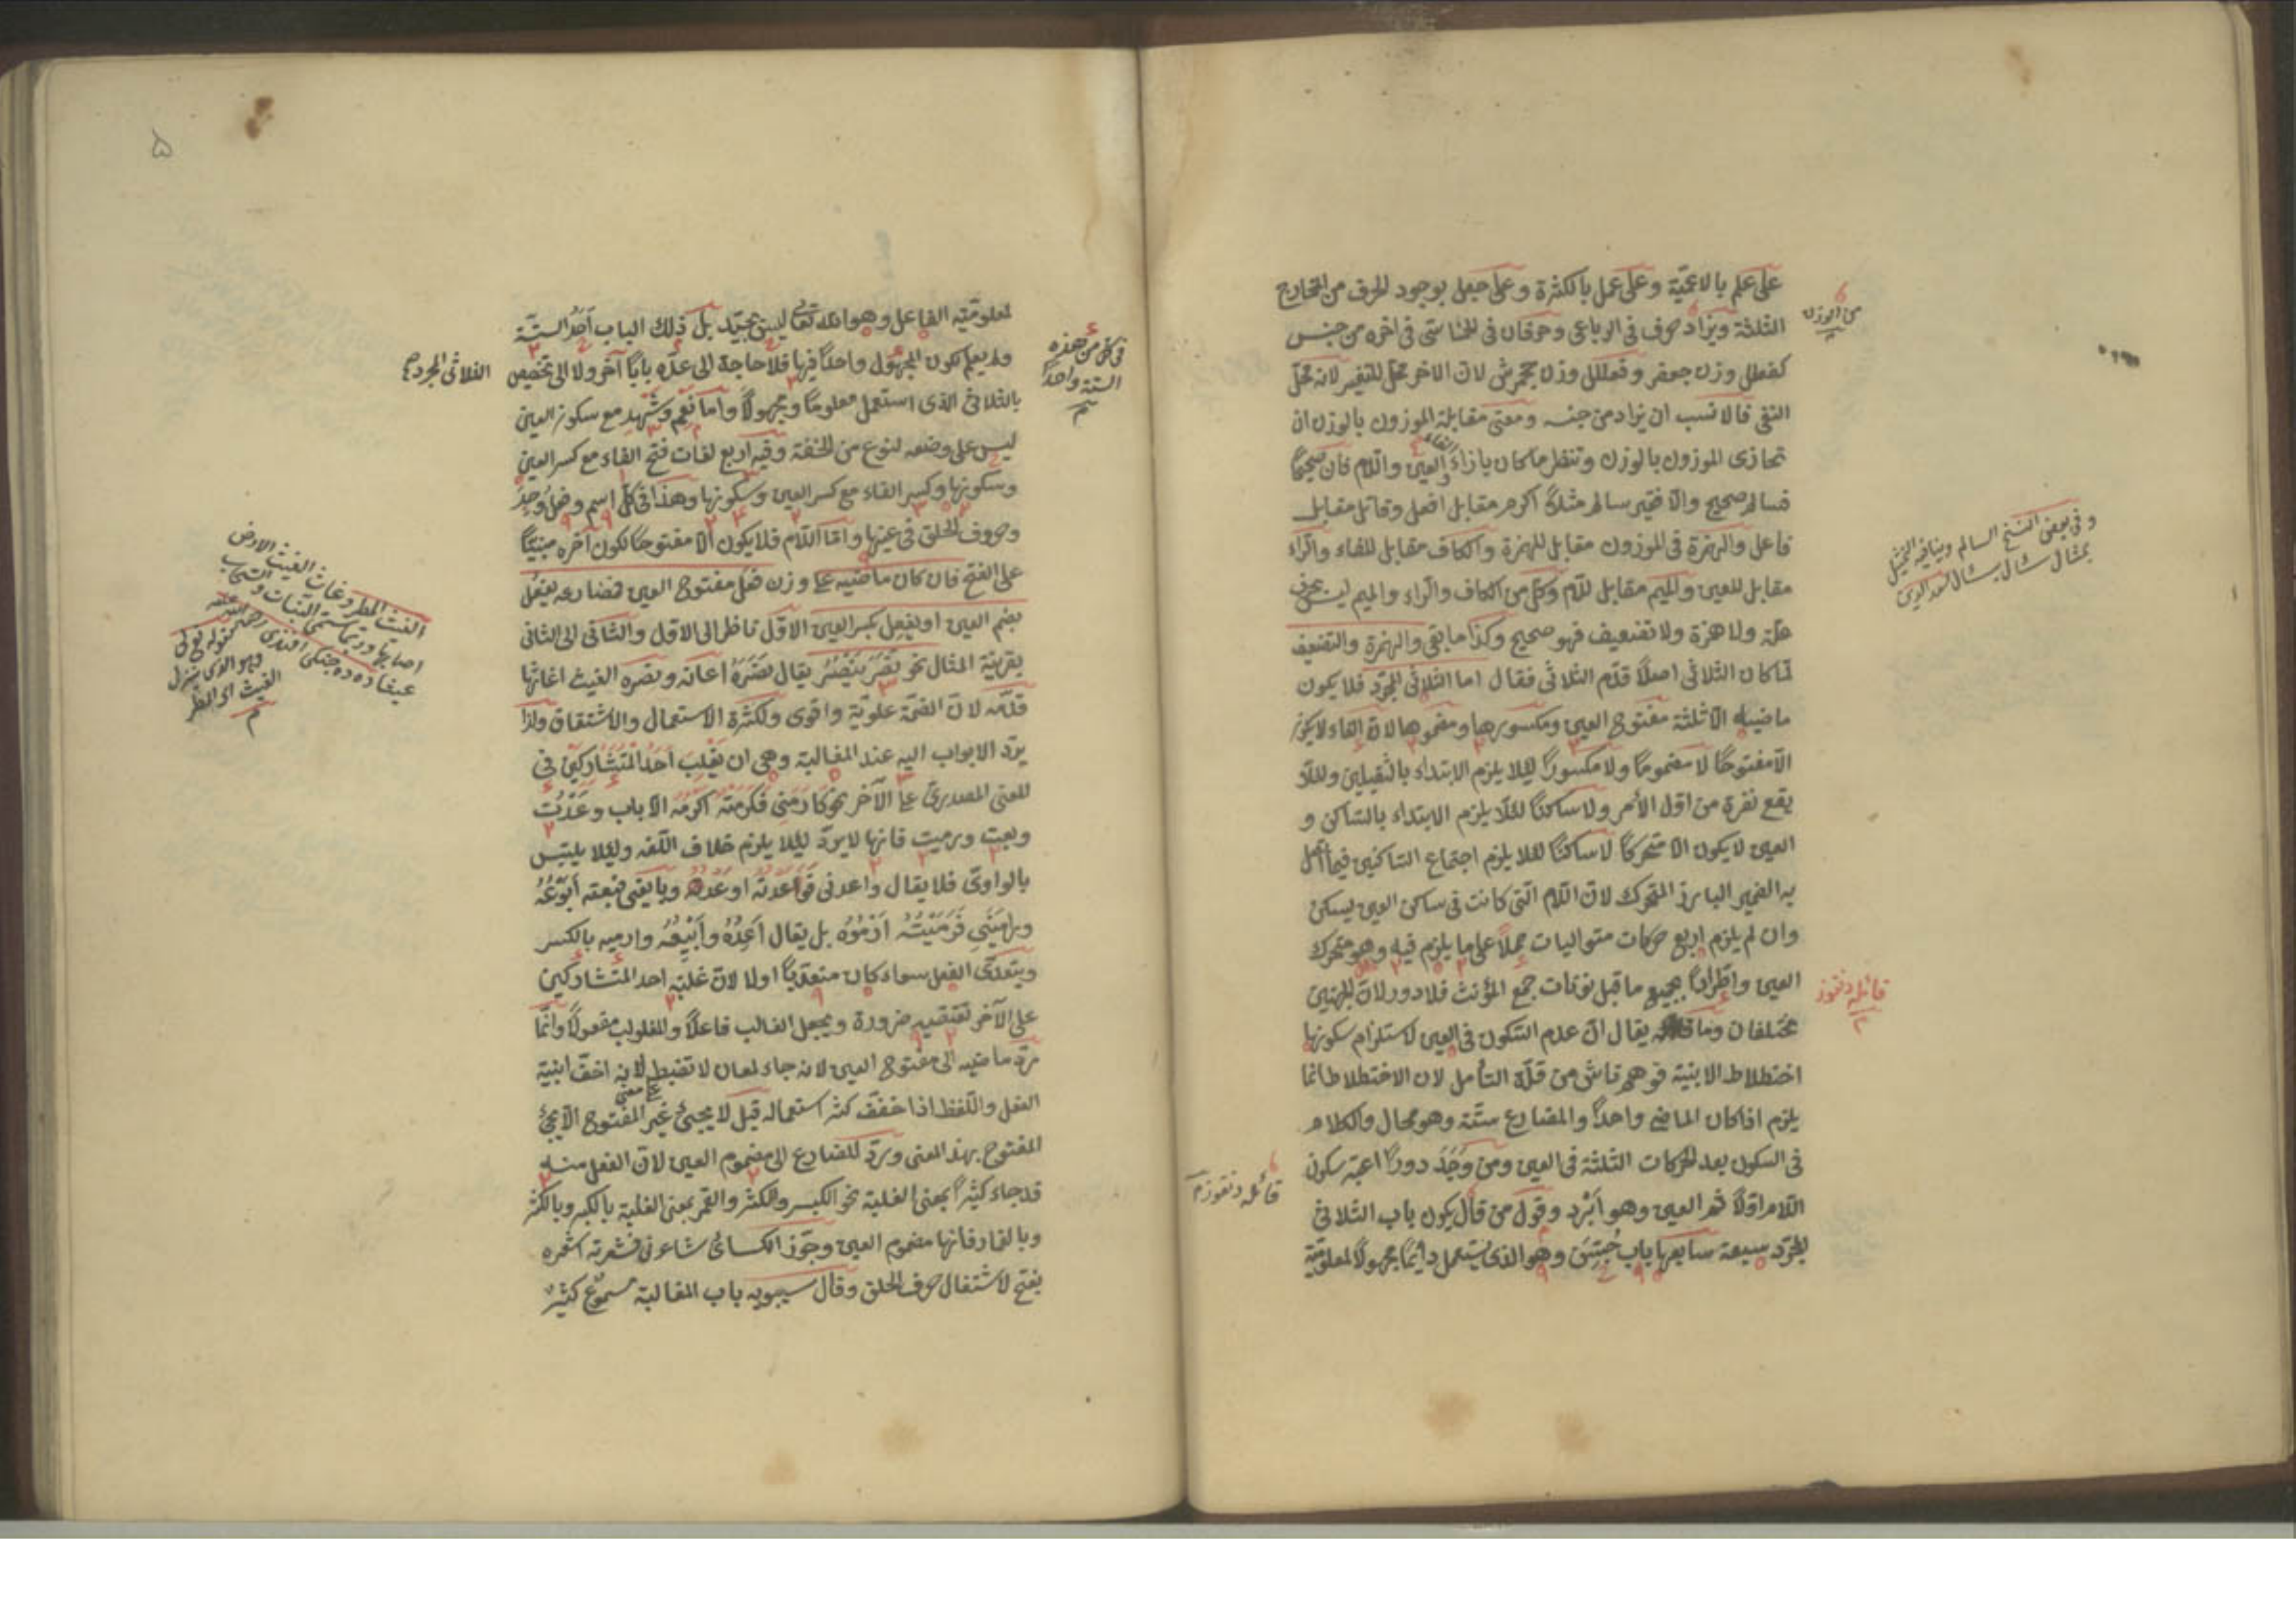 على علم بالاعمية وعلى عمل بالكثرة وعلى جعل بوجود الحرف من المخارج
الثلثة ويزاد حرف فى الرباعى وحرفان فى الخماسى فى اخره من جنس
كفعلل وزن جعفر وفعللل وزن جحمرش لان الاخر محل للتغير لانه محل
النفى فالانسب ان يزاد من جنسه ومعنى مقابلة الموزون بالوزن ان
تحاذى الموزون بالوزن وتنظر ما كان بازاء الفاء والعين واللام فان صحيحًا
فسالم صحيح والا فغير سالم مثلاً اكرم مقابل افعل وقاتل مقابل
فاعل والهمزة فى الموزون مقابل للهمزة والكاف مقابل للفاء والراء
مقابل للعين والميم مقابل للام وكل من الكاف والراء والميم ليس بحرف
علة ولا همزة ولا تضعيف فهو صحيح وكذا ما بقى والهمزة والتضعيف
لما كان الثلاثى اصلاً قدم الثلاثى فقال اما الثلاثى المجرد فلا يكون
ماضيه الا ثلثة مفتوح العين ومكسورها ومضمومها لان الفاء لا يكون
الا مفتوحًا لا مضمومًا ولا مكسورًا ليلا يلزم الابتداء بالثقيلين وليلا
يقع نفرة من اول الأمر ولا ساكنًا لئلا يلزم الابتداء بالساكن و
العين لا يكون الا متحركًا لا ساكنًا لئلا يلزم اجتماع الساكنين فيما اتصل
به الضمير البارز المتحرك لان اللام التى كانت فى ساكن العين يسكن
وان لم يلزم اربع حركات متواليات حملاً على ما يلزم فيه وهو متحرك
العين واطرادًا بجميع ما قبل نونات جمع المؤنث فلا دور لان الجهتين
مختلفان وما يقال ان عدم السكون فى العين لاستلزام سكونها
اختلاط الابنية فوهم ناش من قلة التأمل لان الاختلاط انما
يلزم اذا كان الماضى واحدًا والمضارع ستة وهو محال والكلام
فى السكون بعد الحركات الثلثة فى العين ومن وَجَدَ دورًا اعتبر سكون
اللام اولاً ثم العين وهو اَبْرَد وقول من قال يكون باب الثلاثى
المجرد سبعة سابعها باب جُنِنَ وهو الذى يستعمل دائمًا مجهولاً لمعلومية
من الوزن
وفى بعض النسخ السالم وينافيه التمثيل
قائله دنقوز
قائله دنقوز م
لمعلومية الفاعل وهو الله تعالى ليس بجيد بل ذلك الباب اَحَدُ الستة
ولم يعلم كون المجهول واحدًا فيها فلا حاجة الى عده بابًا آخر ولا الى تخصيص
بالثلاثى الذى استعمل معلومًا ومجهولاً واما نعم وشهد مع سكون العين
ليس على وضعه لنوع من الخفة وفيه اربع لغات فتح الفاء مع كسر العين
وسكونها وكسر الفاء مع كسر العين وسكونها وهذا فى كل اسم وفعل وُجِدَ
وحروف الحلق فى عينها واما اللام فلا يكون الا مفتوحًا لكون آخره مبنيًا
على الفتح فان كان ماضيه على وزن فعل مفتوح العين فمضارعه يفعُل
بضم العين او يفعِل بكسر العين الاول ناظر الى الاول والثانى الى الثانى
بقرينة المثال نحو نَصَرَ يَنْصُرُ يقال نَصَرَهُ اعانه ونصره الغيث اغاثها
قدمه لان الضمة علوية واقوى ولكثرة الاستعمال والاشتقاق ولذا
يرد الابواب اليه عند المغالبة وهى ان يغلِبَ اَحَدُ الْمُتَشَارِكَيْنِ فى
المعنى المصدرى على الآخر نحو كَارَمَنِى فَكَرَمْتُه اَكْرُمُه الا باب وَعَدْتُ
وبعت ورميت فانها لا يرد ليلا يلزم خلاف اللغة وليلا يلتبس
بالواوى فلا يقال واعدنى فَوَاعَدْتُه اوعده وبايعنى فبعته اَبُوعُهُ
ورامَيَنى فَرَمَيْتُهُ اَرْمُوهُ بل يقال اَعِدُهُ واَبِيْعُهُ وارميه بالكسر
ويتعدى الفعل سواء كان متعديًا اولا لان غلبة احد المتشاركين
على الآخر تقتضيه ضرورة ويجعل الغالب فاعلاً والمغلوب مفعولاً وانما
يرد ماضيه الى مفتوح العين لانه جاء لمعان لا تضبط لانه اخف ابنية
الفعل واللفظ اذا خفف كثر استعماله قيل لا يجيئ غير المفتوح على معنى الا يجئ
المفتوح بهذا المعنى ويرد المضارع الى مضموم العين لان الفعل منه
قد جاء كثيرًا بمعنى الغلبة نحو الكبر والكثر والقمر بمعنى الغلبة بالكبر وبالكثر
وبالقمار فانها مضموم العين وجوز الكسائى شاعرنى فشعرته اشعره
بفتح لاشتغال حرف الحلق وقال سيبويه باب المغالبة مسموع كثير
فى كون من هذه
الستة واحدًا
الثلاثى المجرد
الغيث المطر وغاث الغيث الارض
اصابها وربما سمى النبات والسحاب
الغيث اى المطر
م
۵